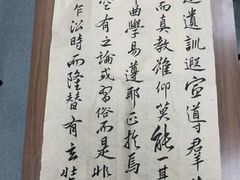 遺訓遐宣導羣
而真教難仰莫能一其
曲學易遵耶正於焉
空有之論或習俗而是非
乍沿時而隆替有玄